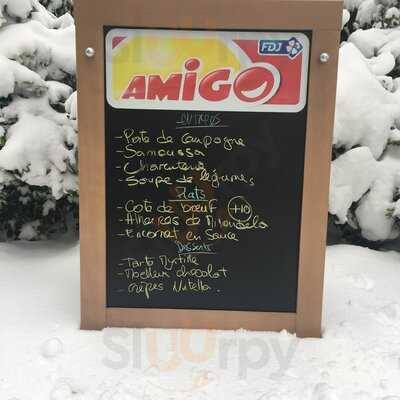 FDJ
AMIGO
ENTREES
- Pate de Campagne
- Samoussa
- Charcuterie
- Soupe de légumes
Plats
- Cote de bœuf +10
- Alheiras de Mirandela
- Encornet en Sauce
Desserts
- Tarte Myrtille
- Moelleux chocolat
- crêpes Nutella.
Sluurpy